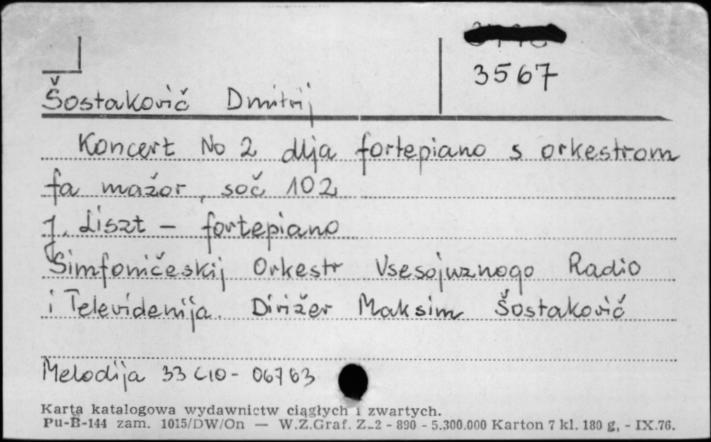 3567
Šostakovič Dmitrij
Koncert No 2 dlja fortepiano s orkestrom
fa mažor, soč 102
J. Liszt - fortepiano
Simfoničeskij Orkestr Vsesojuznogo Radio
i Televidenija. Dirižer Maksim Šostakovič
Melodija 33 C10 - 06763
Karta katalogowa wydawnictw ciągłych i zwartych.
Pu-B-144 zam. 1015/DW/On — W.Z.Graf. Z-2 - 890 - 5.300.000 Karton 7 kl. 180 g, - IX.76.